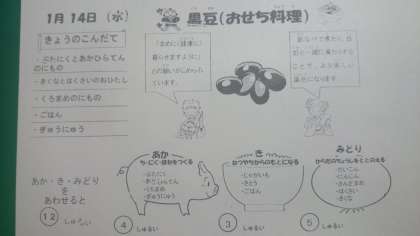 1月14日 (水)
黒豆(おせち料理)
きょうのこんだて
・ぶたにくとあかひらてん
のにもの
・きくなとはくさいのおひたし
・くろまめのにもの
・ごはん
・ぎゅうにゅう
「まめに(健康に)
暮らせますように」
との願いがこめられ
ています。
あか
ち・にく・ほねをつくる
・ぶたにく
・あかひらてん
・くろまめ
・ぎゅうにゅう
き
ねつやちからのもとになる
・じゃがいも
・さとう
・ごはん
みどり
からだのちょうしをととのえる
・だいこん
・にんじん
・さんどまめ
・はくさい
・きくな
あか・き・みどり
を
あわせると
12 しゅるい
4 しゅるい
3 しゅるい
5 しゅるい